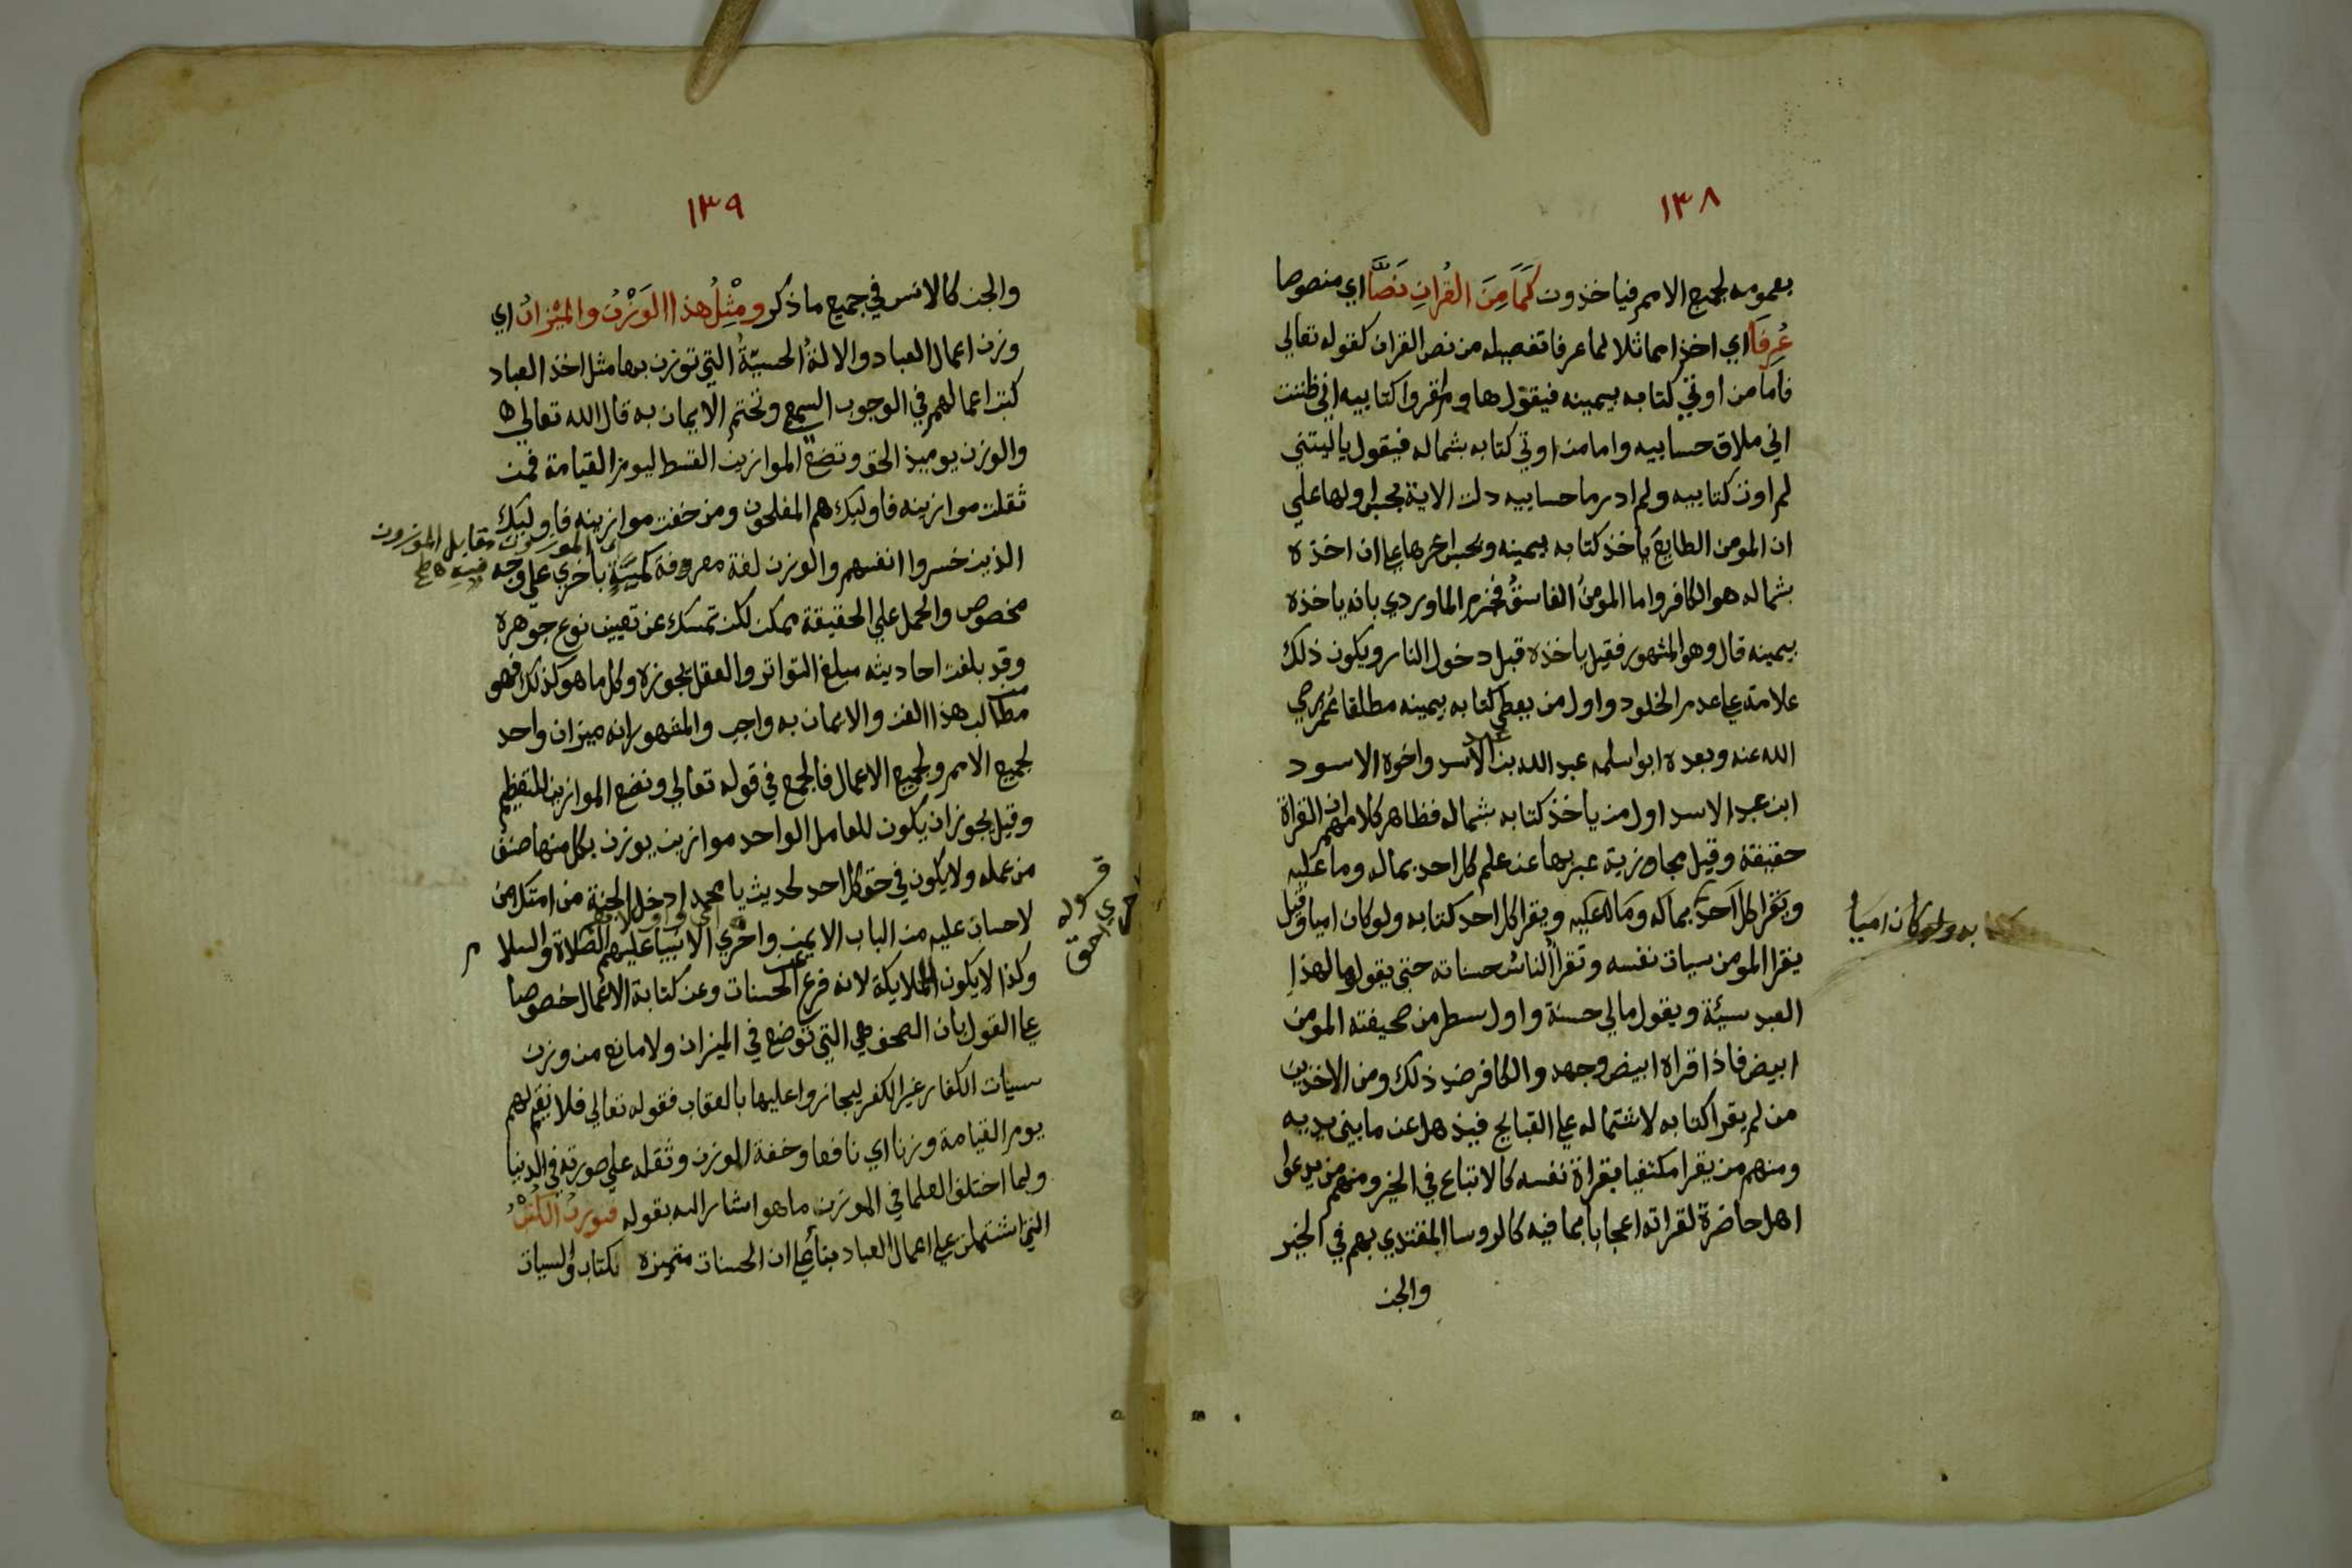 ١٣٨
بعمومه لجميع الامم فياخذون كَمَا مِنَ القُرانِ نَصًّا اي منصوصا
عُرِفَا اي اخذا مماثلا لما عرفا تفصيله من نص القران كقوله تعالى
فاما من اوتي كتابه بيمينه فيقول هاوم اقروا كتابيه اني ظننت
اني ملاق حسابيه واما من اوتي كتابه بشماله فيقول ياليتني
لم اوت كتابيه ولم ادر ما حسابيه دلت الاية اولها علي
ان المومن الطايع ياخذ كتابه بيمينه اخرها علي ان اخذه
بشماله هو الكافر واما المومنُ الفاسقُ فجزم الماوردي بانه ياخذه
بيمينه قال وهو المشهور فقيل ياخذه قبل دخول النار ويكون ذلك
علامة علي عدم الخلود واول من يعطي كتابه بيمينه مطلقا عُمر رضي
الله عنه وبعده ابو اسلمه عبد الله بن عبد الاسد واخوه الاسود
ابن عبد الاسد اول من ياخذ كتابه بشماله فظاهر كلامهم ان القراة
حقيقة وقيل مجازية عبر بها عن علم كل احد بماله وما عليه
ويقرا كل احد بماله وماله عليه ويقرا كل احد كتابه ولو كان اميا وقيل
يقرا المومن سيات نفسه وتقرأ الناسُ حسناته حتي يقولوا ما لهذا
العبد سيئة ويقول مالي حسنة واول سطر من صحيفته المومن
ابيض فاذا قراه ابيض وجهه والكافر ضد ذلك ومن الاخذين
من لم يقرا كتابه لاشتماله علي القبايح فيذهل عن ما بين يديه
ومنهم من يقرا مكتفيا بقراة نفسه كالاتباع في الخير ومنهم من يدعوا
اهل حاضرة لقراته اعجابا بما فيه كالروسا المقتدي بهم في الخير
والجن
به ولو كان اميا
١٣٩
والجن كالانس في جميع ما ذكر ومِثْلُ هذا الوَزْنُ والمِيْزانُ اي
وزن اعمال العباد والالةُ الحسيّةُ التي توزن بها مثل اخذ العباد
كتب اعمالهم في الوجوب السمع وتختم الايمان به قال الله تعالي
والوزن يوميذ الحق ونضع الموازين القسط ليوم القيامة فمن
ثقلت موازينه فاوليك هم المفلحون ومن خفت موازينه فاوليك
الذين خسروا انفسهم والوزن لغة معروفة كميّةٍ باخري علي وجه
مخصوص والحمل علي الحقيقة ممكن لكن تمسك عن تعيين نوع جوهره
وقد بلغت احاديثه مبلغ التواتر والعقل يجوزه وكل ما هو كذلك فهو
من مطالب هذا الفن والايمان به واجب والمشهور انه ميزان واحد
لجميع الامم ولجميع الاعمال فالجمع في قوله تعالي ونضع الموازين للتعظيم
وقيل يجوز ان يكون للعامل الواحد موازين يوزن بكل منها صنف
من عمله ولا يكون في حق كل احد لحديث يا محمد ادخل الجنة من امتك من
لا حساب عليه من الباب الايمن واحري الانبيا عليهم الصلاة والسلام
وكذا لا يكون للملايكة لانه فرع عن الحسنات وعن كتابة الاعمال خصوصا
علي القول بان الصحف هي التي توضع في الميزان ولا مانع من وزن
سيات الكفار غير الكفر ليجازوا عليها بالعقاب فقوله تعالي فلا نقيم لهم
يوم القيامة وزنا اي نافعا وخفة الموزن وثقله علي صورته في الدنيا
ولما اختلف العلما في الموزن ما هو اشار اليه بقوله فتوزن الكتبُ
التي اشتملت علي اعمال العباد بنأ علي ان الحسنات متميزه بكتاب والسيات
مقابل الموزون
قوله
واحري
احق